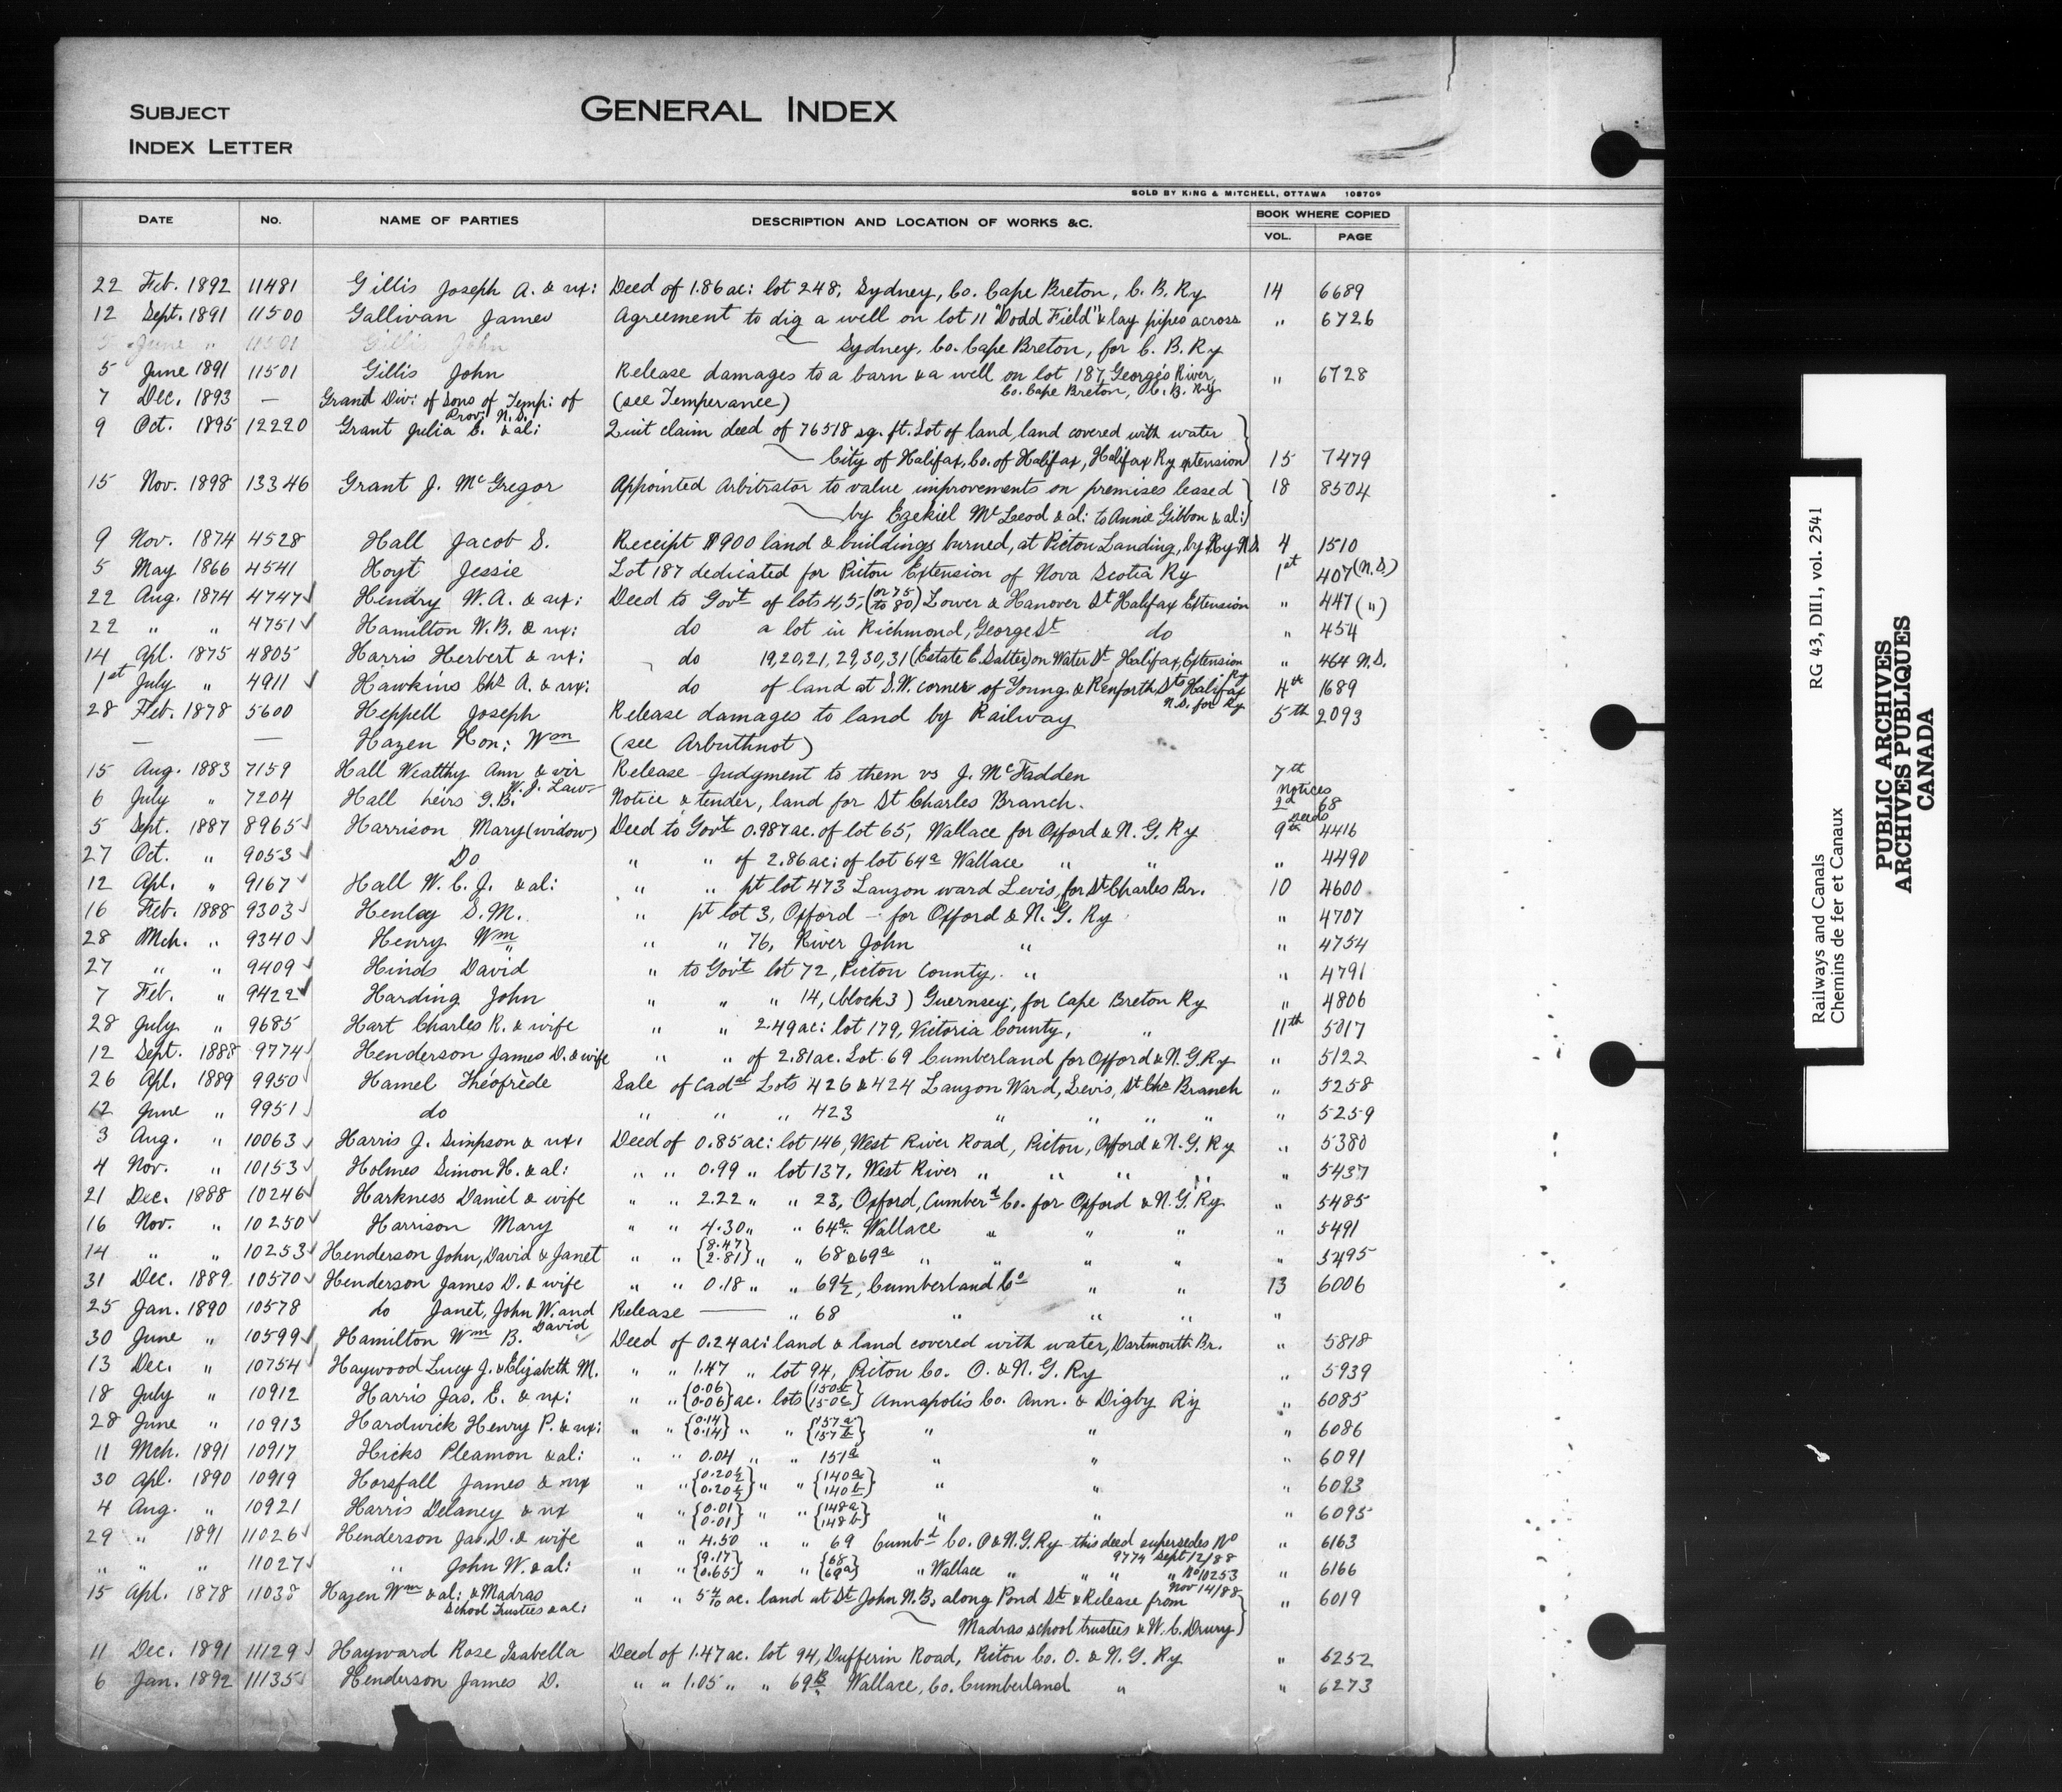 SUBJECT
GENERAL INDEX
INDEX LETTER
SOLD BY KING & MITCHELL, OTTAWA 108709
DATE No. NAME OF PARTIES DESCRIPTION AND LOCATION OF WORKS &C. BOOK WHERE COPIED
VOL. PAGE
22 Feb. 1892 11481 Gillis Joseph A. & ux: Deed of 1.86 ac: lot 248, Sydney, Co. Cape Breton, C. B. Ry 14 6689
12 Sept. 1891 11500 Gallivan James Agreement to dig a well on lot 11 "Dodd Field" & lay pipes across " 6726
5 June " 11501 Gillis John Sydney, Co. Cape Breton, for C. B. Ry
5 June 1891 11501 Gillis John Release damages to a barn & a well on lot 187, George's River, " 6728
Co. Cape Breton, C. B. Ry
7 Dec. 1893 — Grand Div: of Sons of Temp: of (see Temperance)
Prov: N.S.
9 Oct. 1895 12220 Grant Julia C. & al: Quit claim deed of 76518 sq. ft. Lot of land, land covered with water
City of Halifax, Co. of Halifax, Halifax Ry extension 15 7479
15 Nov. 1898 13346 Grant J. McGregor Appointed Arbitrator to value improvements on premises leased 18 8504
by Ezekiel McLeod & al: to Annie Gibbon & al:
9 Nov. 1874 4528 Hall Jacob S. Receipt $900 land & buildings burned, at Pictou Landing, by Ry N.S. 4 1510
5 May 1866 4541 Hoyt Jessie Lot 187 dedicated for Pictou Extension of Nova Scotia Ry 1st 407 (N.S)
22 Aug. 1874 4747 Hendry W. A. & ux: Deed to Govt of lots 4, 5, (or 75 to 80) Lower & Hanover St Halifax Extension " 447 (")
22 " " 4751 Hamilton W. B. & ux: do a lot in Richmond, George St do " 454
14 Apl. 1875 4805 Harris Herbert & ux: do 19, 20, 21, 29, 30, 31 (Estate E. Salter) on Water St Halifax, Extension Ry " 464 N.S.
1st July " 4911 Hawkins Chs A. & ux: do of land at S.W. corner of Young & Renforth Sts Halifax 4th 1689
N.S. for Ry
28 Feb. 1878 5600 Heppell Joseph Release damages to land by Railway 5th 2093
— — Hazen Hon: Wm (see Arbuthnot)
15 Aug. 1883 7159 Hall Wealthy Ann & vir Release Judgment to them vs J. McFadden 7th
W. J. Law
6 July " 7204 Hall heirs G.B. Notice & tender, land for St Charles Branch. Notices 2d 68
5 Sept. 1887 8965 Harrison Mary (widow) Deed to Govt 0.987 ac. of lot 65, Wallace for Oxford & N. G. Ry Deeds 9th 4416
27 Oct. " 9053 Do " " of 2.86 ac: of lot 64a Wallace " " " 4490
12 Apl. " 9167 Hall W. C. J. & al: " " pt lot 473 Lauzon ward Levis, for St Charles Br. 10 4600
16 Feb. 1888 9303 Henley S. M. " pt lot 3, Oxford - for Oxford & N. G. Ry " 4707
28 Mch. " 9340 Henry Wm " " 76, River John " " 4754
27 " " 9409 Hinds David " to Govt lot 72, Pictou County, " " 4791
7 Feb. " 9422 Harding John " " " 14, (block 3) Guernsey, for Cape Breton Ry " 4806
28 July " 9685 Hart Charles R. & wife " " 2.49 ac: lot 179, Victoria County, " 11th 5017
12 Sept. 1888 9774 Henderson James D. & wife " " of 2.81 ac. Lot 69 Cumberland for Oxford & N. G. Ry " 5122
26 Apl. 1889 9950 Hamel Théofrède Sale of Cadal Lots 426 & 424 Lauzon Ward, Levis, St Chs Branch " 5258
12 June " 9951 do " " " 423 " " " " " 5259
3 Aug. " 10063 Harris J. Simpson & ux. Deed of 0.85 ac: lot 146, West River Road, Pictou, Oxford & N. G. Ry " 5380
4 Nov. " 10153 Holmes Simon H. & al: " " 0.99 " lot 137, West River " " " " " 5437
21 Dec. 1888 10246 Harkness Daniel & wife " " 2.22 " " 23, Oxford, Cumberd Co. for Oxford & N. G. Ry " 5485
16 Nov. " 10250 Harrison Mary " " 4.30 " " 64a. Wallace " " " " 5491
14 " " 10253 Henderson John, David & Janet " " {8.47 2.81} " " 68 & 69a " " " " " 5495
31 Dec. 1889 10570 Henderson James D. & wife " " 0.18 " " 69½, Cumberland Co " " 13 6006
25 Jan. 1890 10578 do Janet, John W. and David Release — " 68 " " " "
30 June " 10599 Hamilton Wm B. Deed of 0.24 ac: land & land covered with water, Dartmouth Br. " 5818
13 Dec. " 10754 Haywood Lucy J. & Elizabeth M. " " 1.47 " lot 94, Pictou Co. O. & N. G. Ry " 5939
18 July " 10912 Harris Jas. E. & ux: " " {0.06 0.06} ac. lots {150b 150c} Annapolis Co. Ann. & Digby Ry " 6085
28 June " 10913 Hardwick Henry P. & ux: " " {0.14 0.14} " " {157a 157b} " " " 6086
11 Mch. 1891 10917 Hicks Pleamon & al: " " 0.04 " " 151a " " " 6091
30 Apl. 1890 10919 Horsfall James & ux " " {0.20½ 0.20½} " " {140a 140b} " " " 6093
4 Aug. " 10921 Harris Delaney & ux " " {0.01 0.01} " " {148a 148b} " " " 6095
29 " 1891 11026 Henderson Jas. D. & wife " " 4.50 " " 69 Cumbd Co. O & N. G. Ry this deed supersedes No 9774 Sept 12/88 " 6163
" " " 11027 " John W. & al: " " {9.17 0.65} " " {68 69a} " Wallace " " " " No 10253 Nov 14/88 " 6166
15 Apl. 1878 11038 Hazen Wm & al: & Madras " " 5 4/10 ac. land at St John N.B. along Pond St & Release from " 6019
School Trustees & al: Madras school trustees & W. C. Drury
11 Dec. 1891 11129 Hayward Rose Isabella Deed of 1.47 ac. lot 94, Dufferin Road, Pictou Co. O. & N. G. Ry " 6252
6 Jan. 1892 11135 Henderson James D. " " 1.05 " " 69B Wallace, Co. Cumberland " " 6273
Railways and Canals RG 43, DII1, vol. 2541
Chemins de fer et Canaux
PUBLIC ARCHIVES
ARCHIVES PUBLIQUES
CANADA